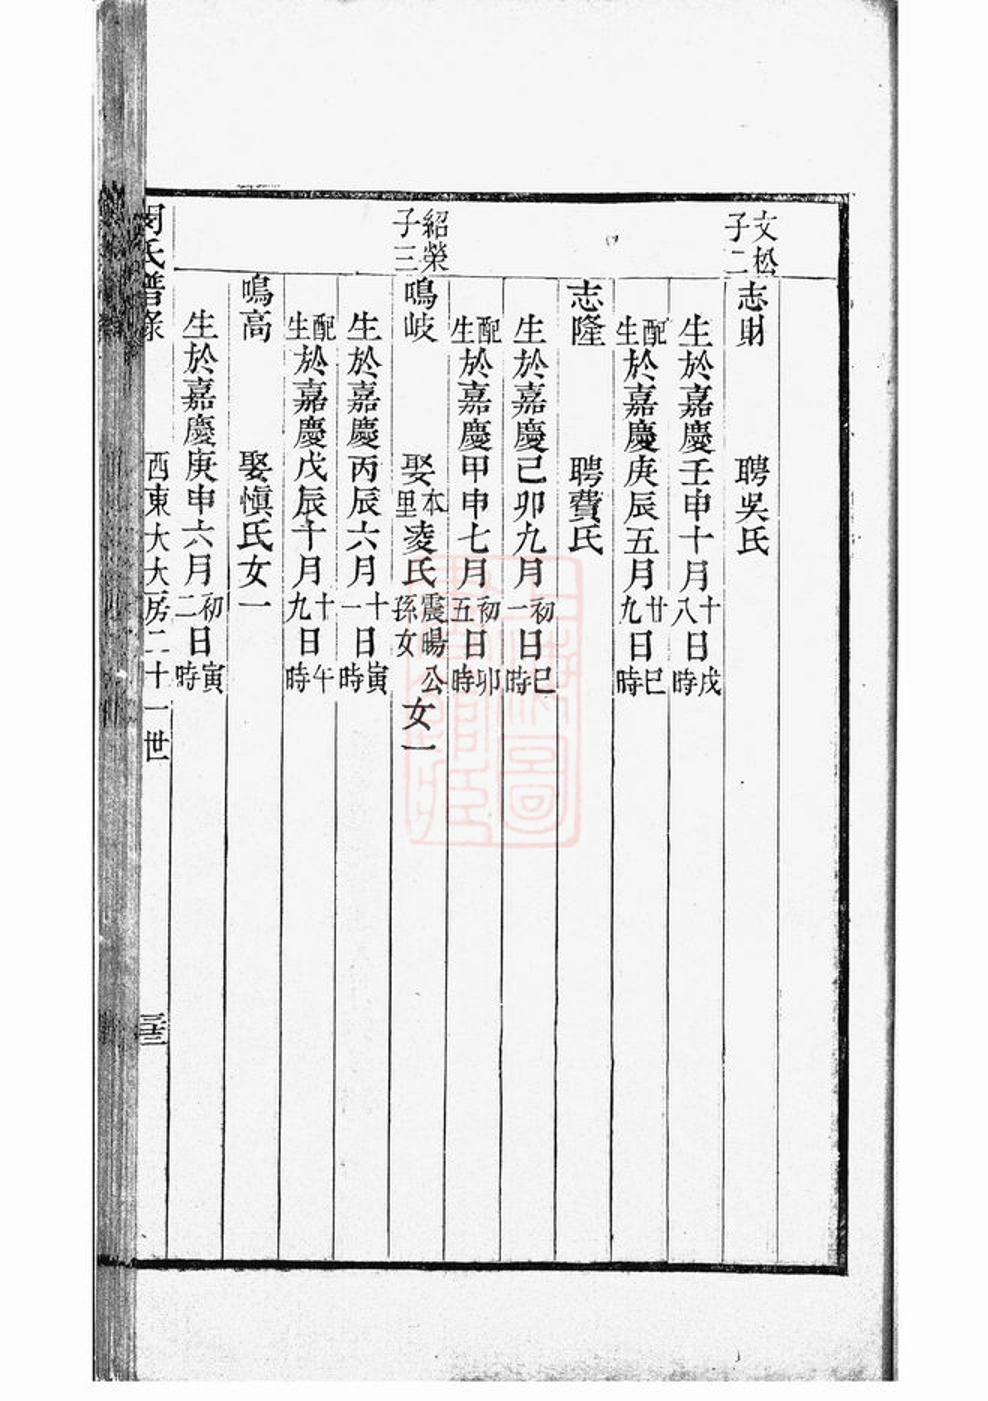 文松子二
志財 聘吳氏
生於嘉慶壬申十月十八日戌時
配生於嘉慶庚辰五月廿九日巳時
志隆 聘費氏
生於嘉慶己卯九月初一日巳時
配生於嘉慶甲申七月初五日卯時
紹榮子三
鳴岐 娶本里凌氏震暘公孫女 女一
生於嘉慶丙辰六月十一日寅時
配生於嘉慶戊辰十月十九日午時
鳴高 娶愼氏女一
生於嘉慶庚申六月初二日寅時
氏譜錄 西東大大房二十一世 三十三
上海圖書館藏